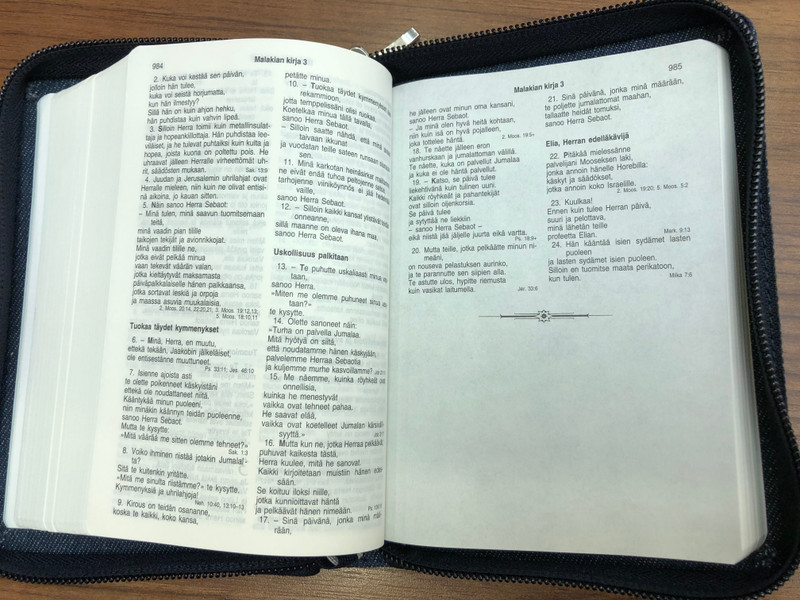 984
Malakian kirja 3
2. Kuka voi kestää sen päivän,
jolloin hän tulee,
kuka voi seistä horjumatta,
kun hän ilmestyy?
Sillä hän on kuin ahjon hehku,
hän puhdistaa kuin vahvin lipeä.
3. Silloin Herra toimii kuin metallinsulat-
taja ja hopeankillottaja. Hän puhdistaa lee-
viläiset, ja he tulevat puhtaiksi kuin kulta ja
hopea, joista kuona on poltettu pois. He
uhraavat jälleen Herralle virheettömät uh-
rit, säädösten mukaan.
Sak. 13:9
4. Juudan ja Jerusalemin uhrilahjat ovat
Herralle mieleen, niin kuin ne olivat entisi-
nä aikoina, jo kauan sitten.
5. Näin sanoo Herra Sebaot:
– Minä tulen, minä saavun tuomitsemaan
teitä,
minä vaadin pian tilille
taikojen tekijät ja avionrikkojat.
Minä vaadin tilille ne,
jotka eivät pelkää minua
vaan tekevät väärän valan,
jotka kieltäytyvät maksamasta
päiväpalkkalaiselle hänen palkkaansa,
jotka sortavat leskiä ja orpoja
ja maassa asuvia muukalaisia.
2. Moos. 20:14, 22:20,21; 3. Moos. 19:12,13;
5. Moos. 18:10,11
Tuokaa täydet kymmenykset
6. – Minä, Herra, en muutu,
ettekä tekään, Jaakobin jälkeläiset,
ole entisestänne muuttuneet.
Ps. 33:11; Jes. 46:10
7. Isienne ajoista asti
te olette poikenneet käskyistäni
ettekä ole noudattaneet niitä.
Kääntykää minun puoleeni,
niin minäkin käännyn teidän puoleenne,
sanoo Herra Sebaot.
Mutta te kysytte:
»Mitä väärää me sitten olemme tehneet?»
Sak. 1:3
8. Voiko ihminen riistää jotakin Jumalal-
ta?
Sitä te kuitenkin yritätte.
»Mitä me sinulta riistämme?» te kysytte.
Kymmenyksiä ja uhrilahjoja!
Neh. 10:40, 13:10–13
9. Kirous on teidän osananne,
koska te kaikki, koko kansa,
petätte minua.
10. – Tuokaa täydet kymmenykset
rekammioon,
jotta temppelissäni olisi ruokaa.
Koetelkaa minua tällä tavalla,
sanoo Herra Sebaot.
– Silloin saatte nähdä, että minä
taivaan ikkunat
ja vuodatan teille sateen runsaan
sen.
11. Minä karkotan heinäsirkat
ne eivät enää tuhoa peltojenne
tarhojenne viiniköynnös ei jää
vaille,
sanoo Herra Sebaot.
12. – Silloin kaikki kansat ylistävät teidän
onneanne,
sillä maanne on oleva ihana maa,
sanoo Herra Sebaot.
Uskollisuus palkitaan
13. – Te puhutte uskaliaasti minua vas-
taan,
sanoo Herra.
»Miten me olemme puhuneet sinua vas-
taan?»
te kysytte.
14. Olette sanoneet näin:
»Turha on palvella Jumalaa.
Mitä hyötyä on siitä,
että noudatamme hänen käskyjään,
palvelemme Herraa Sebaotia
ja kuljemme murhe kasvoillamme?
15. Me näemme, kuinka röyhkeät ovat
onnellisia,
kuinka he menestyvät
vaikka ovat tehneet pahaa.
He saavat elää,
vaikka ovat koetelleet Jumalan kärsivälli-
syyttä.»
16. Mutta kun ne, jotka Herraa pelkäävät,
puhuvat kaikesta tästä,
Herra kuulee, mitä he sanovat.
Kaikki kirjoitetaan muistiin hänen edes-
sään.
Se koituu iloksi niille,
jotka kunnioittavat häntä
ja pelkäävät hänen nimeään.
17. – Sinä päivänä, jonka minä mää-
rään,
985
Malakian kirja 3
he jälleen ovat minun oma kansani,
sanoo Herra Sebaot.
– Ja minä olen hyvä heitä kohtaan,
niin kuin isä on hyvä pojalleen,
joka tottelee häntä.
2. Moos. 19:5+
18. Te näette jälleen eron
vanhurskaan ja jumalattoman välillä.
Te näette, kuka on palvellut Jumalaa
ja kuka ei ole häntä palvellut.
19. – Katso, se päivä tulee
liekehtivänä kuin tulinen uuni.
Kaikki röyhkeät ja pahantekijät
ovat silloin oljenkorsia.
Se päivä tulee
ja sytyttää ne liekkiin
– sanoo Herra Sebaot –
eikä niistä jää jäljelle juurta eikä vartta.
Ps. 18:9+
20. Mutta teille, jotka pelkäätte minun ni-
meäni,
on nouseva pelastuksen aurinko,
ja te parannutte sen siipien alla.
Te astutte ulos, hypitte riemusta
kuin vasikat laitumella.
Jer. 33:6
21. Sinä päivänä, jonka minä määrään,
te poljette jumalattomat maahan,
tallaatte heidät tomuksi,
sanoo Herra Sebaot.
Elia, Herran edelläkävijä
22. Pitäkää mielessänne
palvelijani Mooseksen laki,
jonka annoin hänelle Horebilla:
käskyt ja säädökset,
jotka annoin koko Israelille.
2. Moos. 19:20; 5. Moos. 5:2
23. Kuulkaa!
Ennen kuin tulee Herran päivä,
suuri ja pelottava,
minä lähetän teille
profeetta Elian.
Mark. 9:13
24. Hän kääntää isien sydämet lasten
puoleen
ja lasten sydämet isien puoleen.
Silloin en tuomitse maata perikatoon,
kun tulen.
Miika 7:6